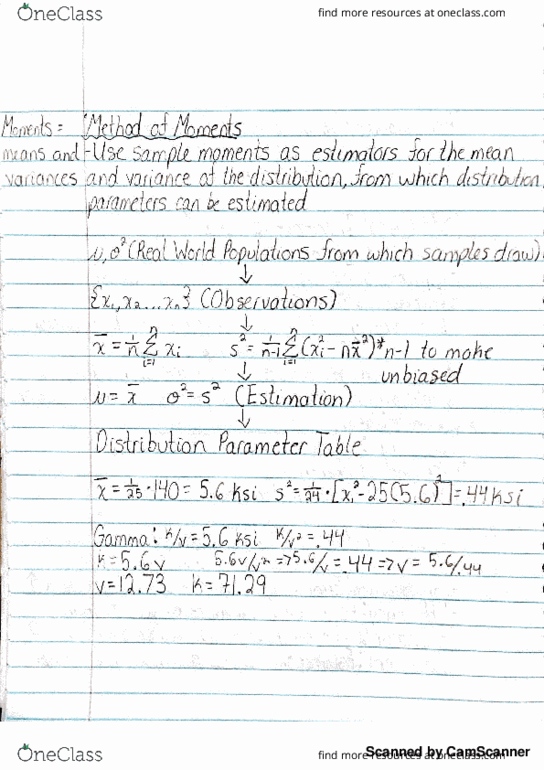 OneClass
find more resources at oneclass.com
Moments = Method of Moments
means and -Use sample moments as estimators for the mean
variances and variance of the distribution, from which distribution
parameters can be estimated
μ, σ² (Real World Populations from which samples draw)
↓
{x₁, x₂ ... xₙ} (Observations)
↓
x̄ = 1/n Σⁿᵢ₌₁ xᵢ s² = 1/n-1 Σⁿᵢ₌₁ (xᵢ² - nx̄²) *n-1 to make
↓ unbiased
μ = x̄ σ² = s² (Estimation)
↓
Distribution Parameter Table
x̄ = 1/25 · 140 = 5.6 ksi s² = 1/24 · [xᵢ² - 25(5.6)²] = .44 ksi
Gamma: k/v = 5.6 ksi k/v² = .44
k = 5.6v 5.6v/v² => 5.6/v = .44 => v = 5.6/.44
v = 12.73 k = 71.29
OneClass
find more resources at oneclass.com
Scanned by CamScanner